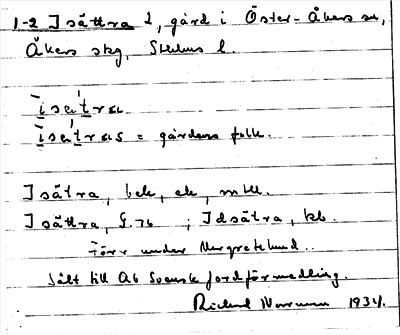 1-2 Isättra 1, gård i Öster-Åkers sn,
Åkers skg, Sthlms l.
isätra
= gårdens folk.
Isätra,
Isättra, G.76 ; Idsätra, kb.
Förr under Margretelund.
Sålt till AB Svensk jordförmedling.
Rickard 1934.